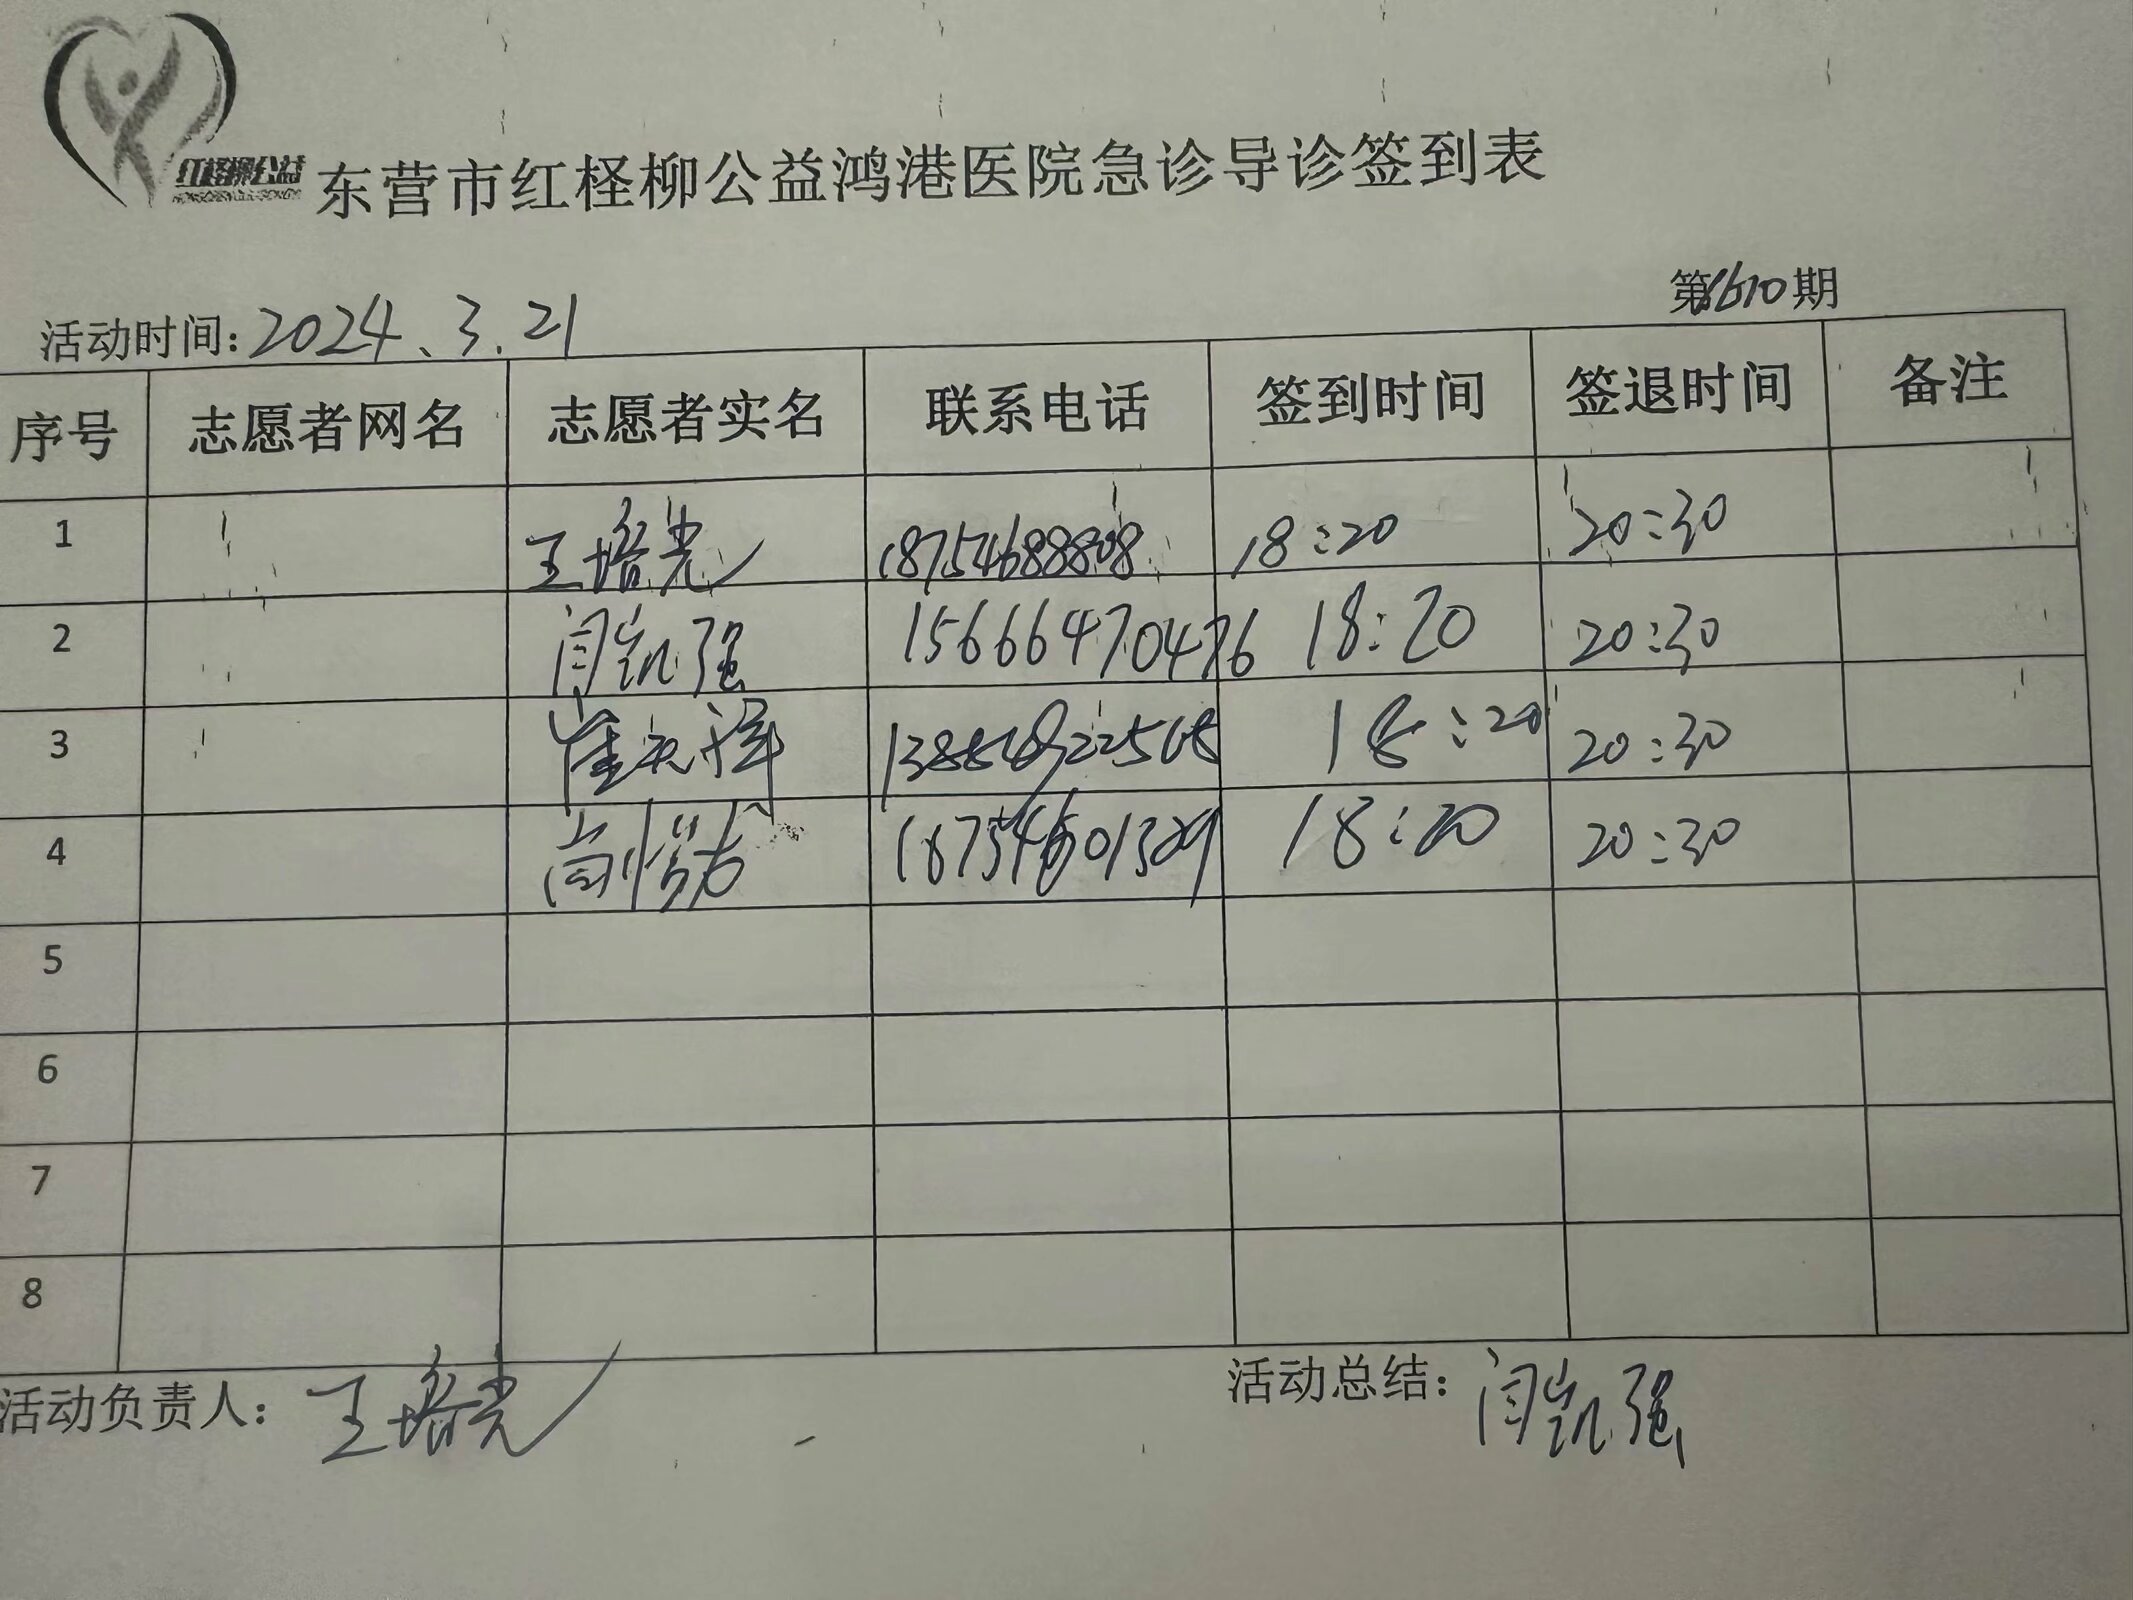 红柽柳公益
东营市红柽柳公益鸿港医院急诊导诊签到表
第1610期
活动时间：2024.3.21
序号 志愿者网名 志愿者实名 联系电话 签到时间 签退时间 备注
1 王培光 18754688808 18:20 20:30
2 闫凯强 15666470476 18:20 20:30
3 崔 18:20 20:30
4 尚 18:20 20:30
5
6
7
8
活动负责人：王培光 活动总结：闫凯强